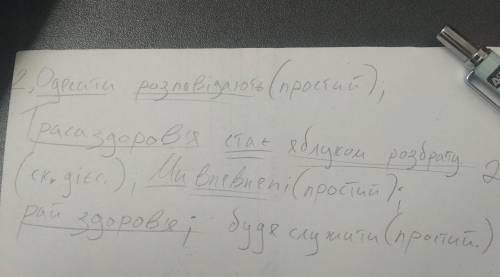 2, Одесити розповідають (простий),
Траса здоров'я стає яблуком розбрату 2
(ск. дієс.), Ми впевнені (простий);
рай здоров'я; буде служити (простий.)